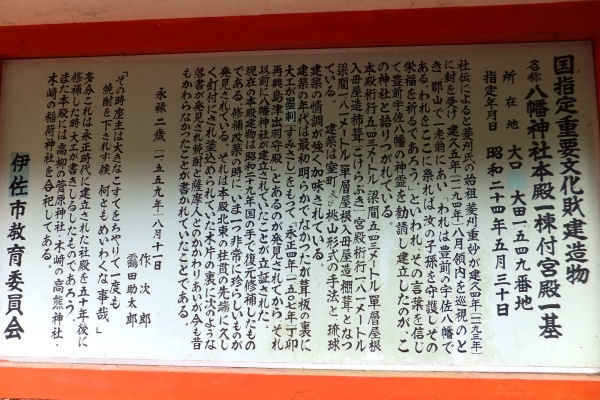 国指定重要文化財建造物
名称 八幡神社本殿一棟付宮殿一基
所在地 大口 大田一五四九番地
指定年月日 昭和二十四年五月三十日
社伝によると菱刈氏の始祖 菱刈重妙が建久四年(一一九三年)
に封を受け 建久五年(一一九四年)八月領内を巡視のと
き 郡山で一老翁にあい「われは豊前ノ宇佐八幡で
ある、われをここに祭れば汝の子孫を守護しその
栄福を祈るであろう」といわれ その言葉を信じ
て豊前宇佐八幡の神霊を勧請し建立したのが、こ
の神社と語りつがれている。
本殿 桁行五四三メートル 梁間五四三メートル 單層屋根
入母屋造柿葺(こけらぶき)宮殿桁行一八一メートル
梁間一八一メートル 單層屋根入母屋造棚葺となっ
ている。 建築は室町、桃山形式の手法と 琉球
建築の情調が強く加味されている。
建築の年代は最初明らかでなかったが葺板の裏に
大工が墨刺(すみさし)をもって「永正四年(一五〇七年)丁卯
再興島津出羽守殿」とあるのが発見されてから それ
以前に八幡神社が建立されていたことが立証された。
現在の本殿建物は昭和二十九年国で復元修補したもの
である。修補改築の時にいま一つ非常に珍らしいものが
発見されている。それは本殿北東の柱貫の先端に久し
く釘付にされ塗込められていた木片の裏に次のような
落書が発見され焼酎と薩摩人とのかかわりあいが今も昔
もかわらなかったことが書かれていたことである。
永禄二歳(一五五九年)八月十一日
作次郎
靏田助太郎
「その時座主は大きなこすてをちゃりて一度も
焼酎を下されず候 何ともめいわくな事哉。」
多分これは永正時代に建立された社殿を五十年後に
修補した時、大工が書きしるしたものであろう。
また本殿には高柳の菅原神社・木崎の高熊神社・
木崎の稲荷神社を合祀である。
伊佐市教育委員会